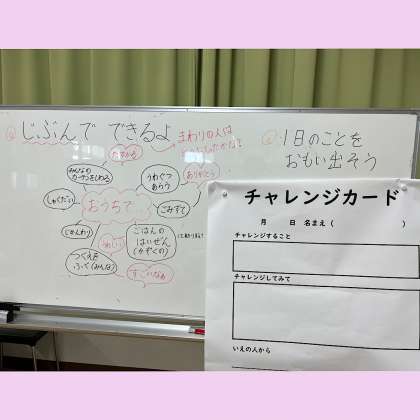 じぶんで できるよ
たすかる
まわりの人は
ありがとう
1日のことを
おもい出そう
みんなの
カーテンをしめる
うわぐつ
あらう
しゅくだい
おうちで
ごみすて
じかんわり
うれしい
ごはんの
はいぜん
(かぞくの)
つくえを
ふく(みんな)
すごいなぁ
チャレンジカード
月 日 名まえ( )
チャレンジすること
チャレンジしてみて
いえの人から